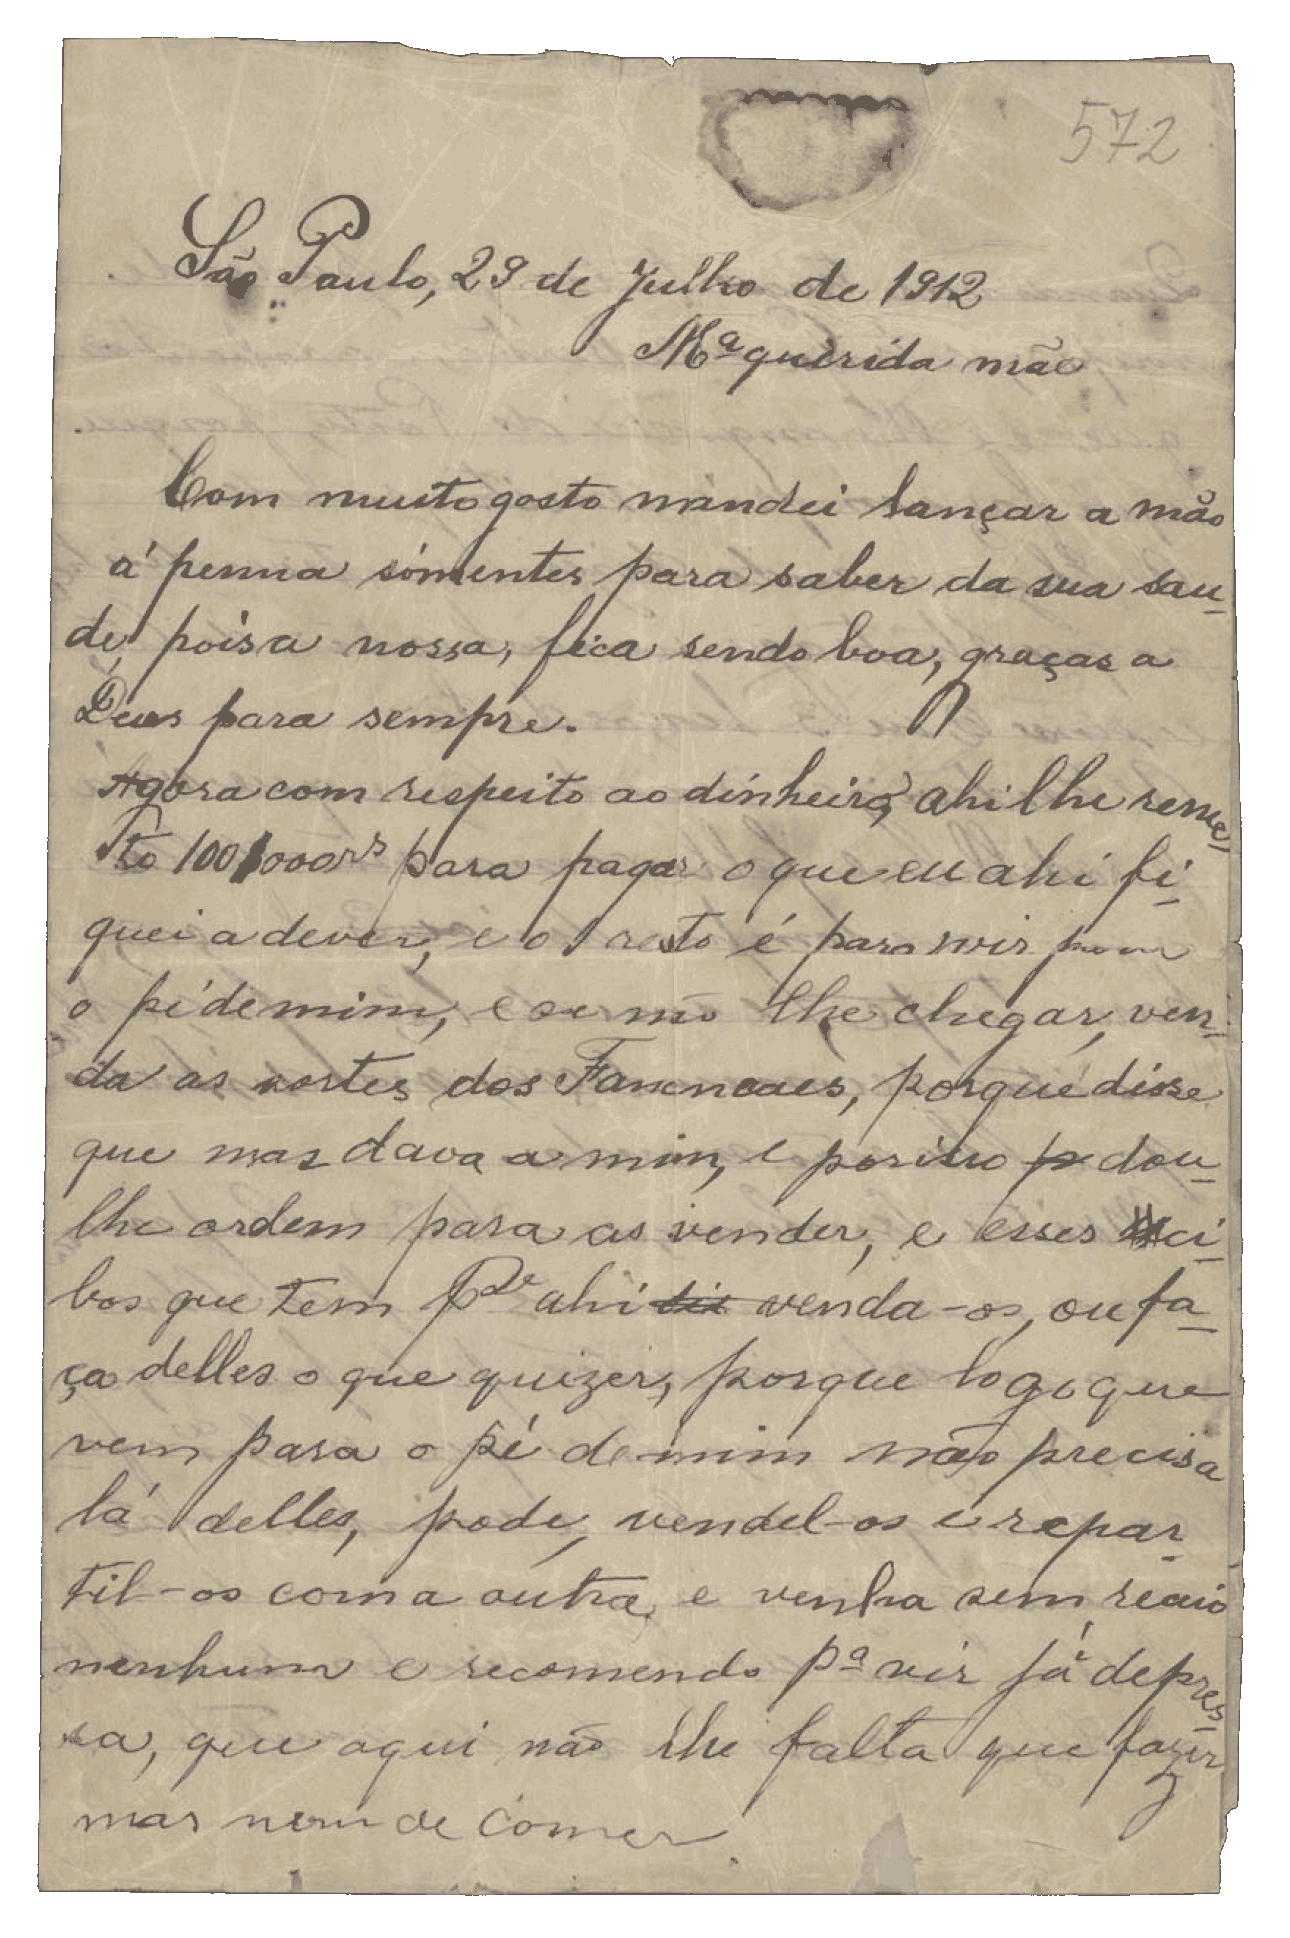 572
São Paulo, 29 de Julho de 1912
Mª querida mãe
Com muito gosto mandei lançar a mão
á penna sómentes para saber da sua sau-
de, pois a nossa, fica sendo boa, graças a
Deus para sempre.
Agora com respeito ao dinheiro, ahi lhe reme-
to 100$000rs para pagar o que eu ahi fi-
quei a dever, e o resto é para vir para
o pé de mim, e se não lhe chegar, ven-
da as sortes dos, porque disse
que mas dava a mim, e por isso dou-
lhe ordem para as vender, e esses ci-
bos que tem Pde ahi venda-os, ou fa-
ça delles o que quizer, porque logo que
vem para o pé de mim não precisa
lá delles, pode, vendel-os e repar-
til-os com a outra, e venha sem receio
nenhum e recomendo pª vir já depres-
sa, que aqui não lhe falta que fazer
mas nem de comer.